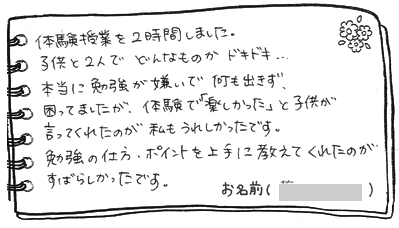 体験授業を2時間しました。
子供と2人で どんなものか ドキドキ…
本当に勉強が嫌いで 何も出きず、
困ってましたが、体験で「楽しかった」と子供が
言ってくれたのが 私もうれしかったです。
勉強の仕方、ポイントを上手に教えてくれたのが
すばらしかったです。
お名前( )